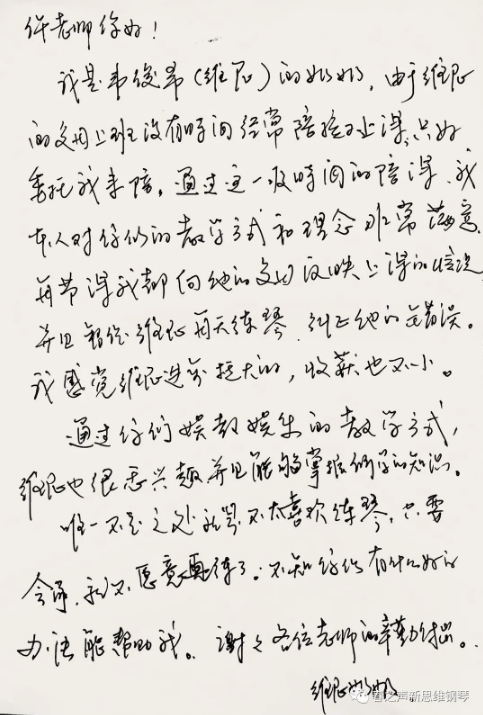 许老师你好！
我是韦俊希（维尼）的奶奶，由于维尼
的父母上班没有时间经常陪孩子上课，只好
委托我来陪。通过这一段时间的陪课，我
本人对你们的教学方式和理念非常满意，
每节课我都向他的父母反映上课的情况
并且督促维尼每天练琴，纠正他的错误。
我感觉维尼进步挺大的，收获也不小。
通过你们娱教娱乐的教学方式，
维尼也很感兴趣并且能够掌握所学的知识。
唯一不足之处就是不太喜欢练琴，只要
会了，就不愿意再练了。不知你们有什么好的
办法能帮助我。谢谢各位老师的辛勤付出。
维尼奶奶。
看之声新思维钢琴